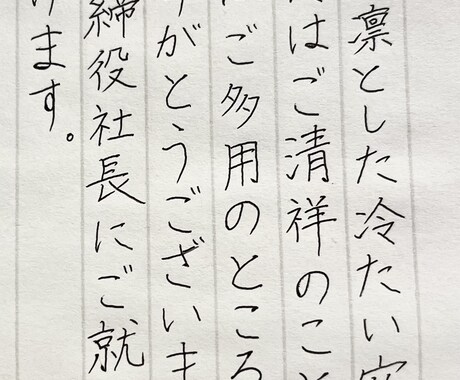 凛とした冷たい空
はご清祥のこと
ご多用のところ
がとうございま
締役社長にご就
ます。